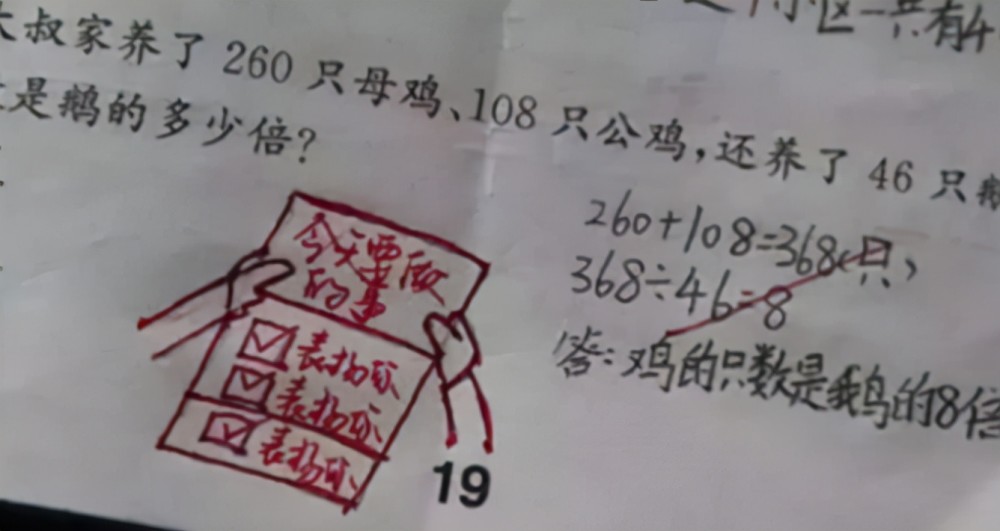 小区一共有4
大叔家养了 260 只母鸡、108 只公鸡，还养了 46 只
是鹅的多少倍？
260+108=368(只)
368÷46=8
答：鸡的只数是鹅的8倍
今天要做
的事
表扬你
表扬你
表扬你
19